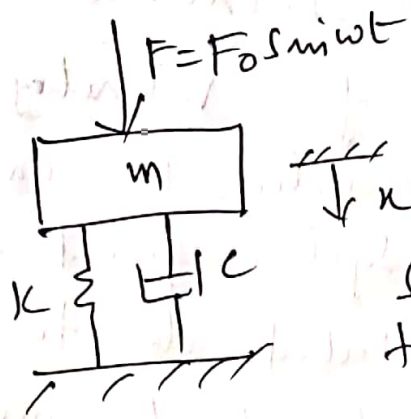 F = F₀ sin ωt
m
x
K
C